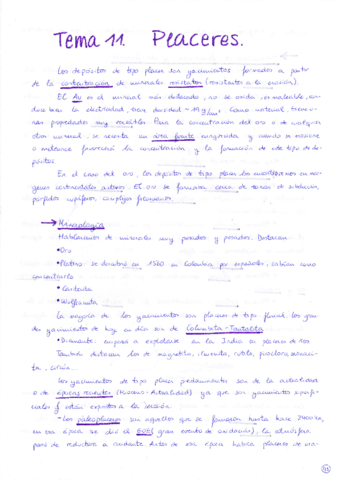 Tema 11. Placeres.
Los depósitos de tipo placer son yacimientos formados a partir
de la concentración de minerales resistatos (resistentes a la erosión).
El Au es el mineral más destacado, no se oxida, es maleable, con-
duce bien la electricidad, tiene densidad = 19 g/cm³. Como material, tiene u-
nas propiedades muy
Para la concentración del oro o de cualquier
otro mineral, se necesita un área fuente
y cuando se erosione
o meteorice favorecerá la concentración y la formación de este tipo de de-
pósitos.
En el caso del oro, los depósitos de tipo placer los encontramos en már-
genes continentales activos. El oro se forma cerca de zonas de subducción,
pórfidos cupríferos, complejos
→ Mineralogía
Hablaremos de minerales muy pesados y pesados. Destacan
• Oro
• Platino: se descubrió en
en Colombia por españoles,
como
• Casiterita
• Wolframita
La mayoría de los yacimientos son placeres de tipo fluvial. Los gran-
des yacimientos de hoy en día son de Columbita-Tantalita
• Diamante: empezó a explotarse en la India en placeres de ríos
También destacan los de magnetita, ilmenita, rutilo, pirocloro, monaci-
ta, circón...
Los yacimientos de tipo placer predominantes son de la actualidad
o de épocas recientes (Mioceno-Actualidad) ya que son yacimientos superfi-
ciales y están expuestos a la erosión.
• Los paleoplaceres son aquellos que se formaron hasta hace
en esa época se dio el GOE (gran evento de oxidación), la atmósfera
pasó de reductora a oxidante. Antes de esa época había placeres de ura-